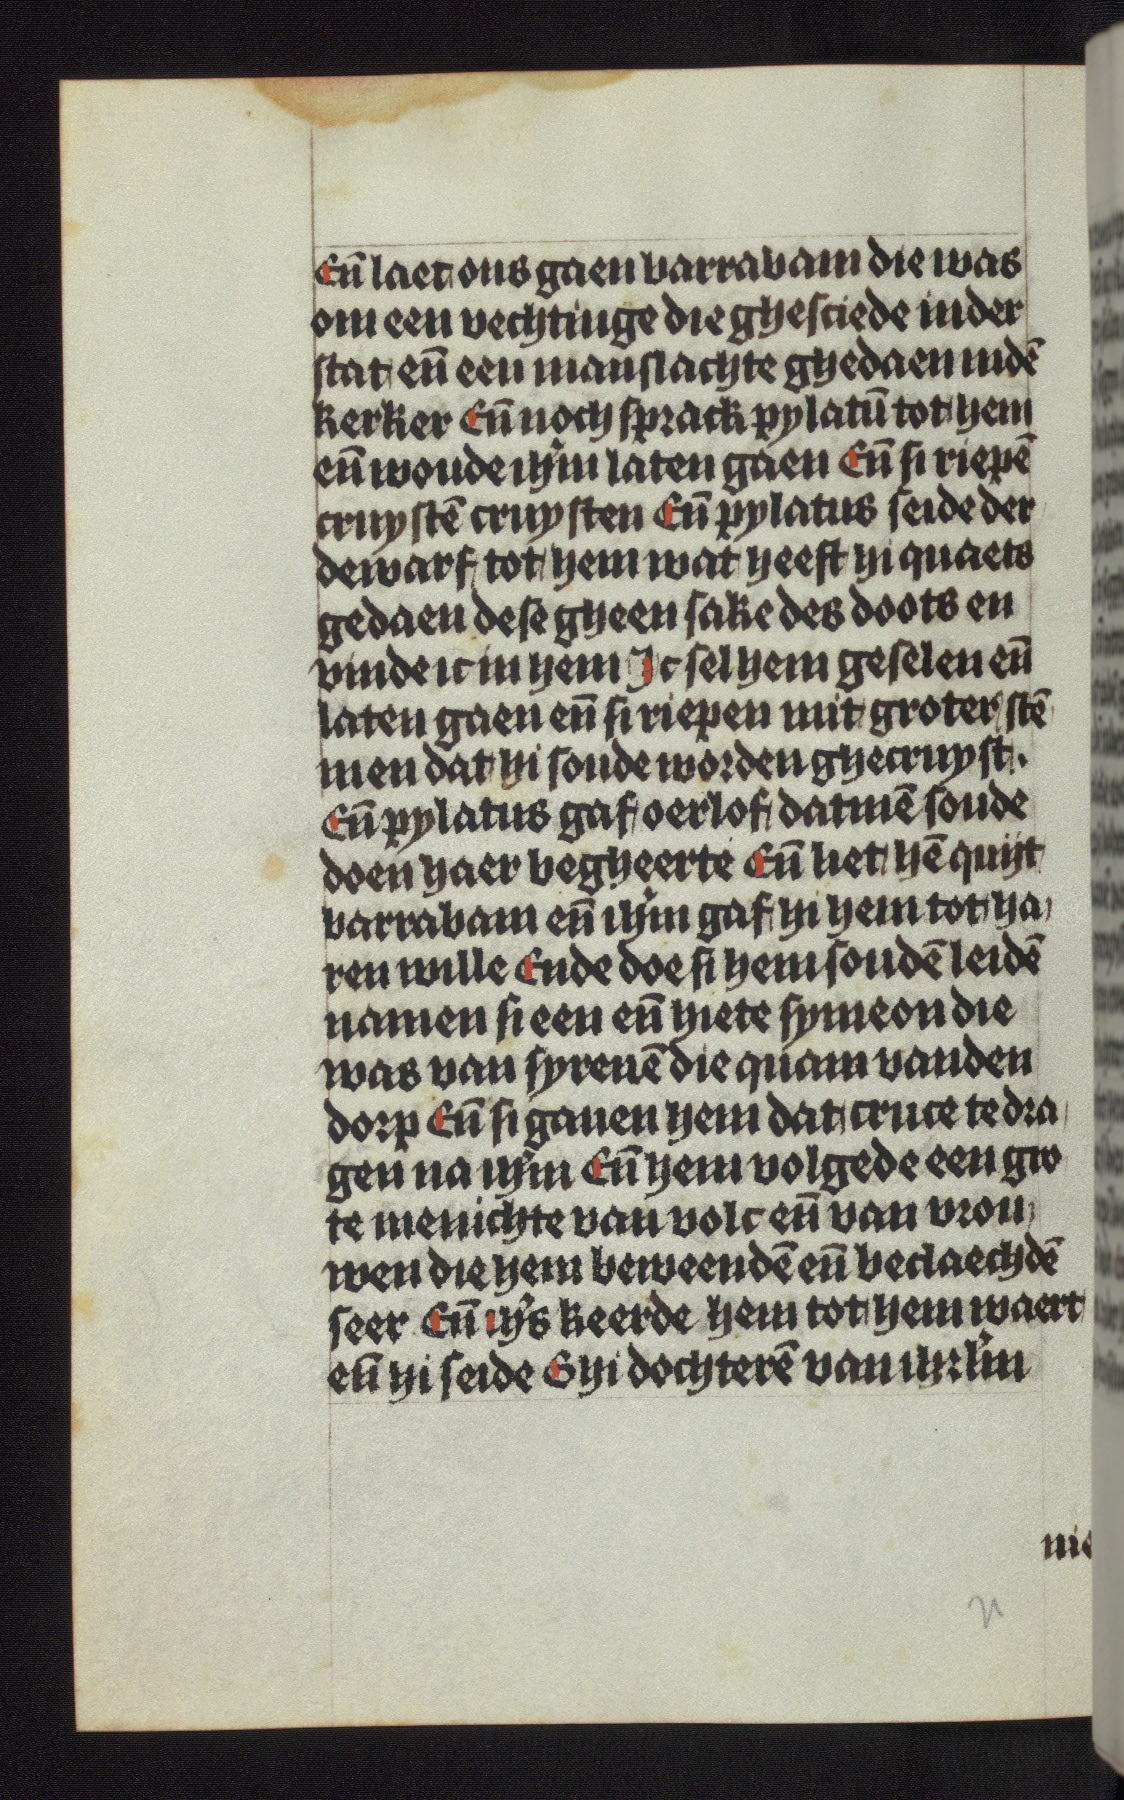 Eñ laet ons gaen barrabam die was
om een vechtinge die ghesciede inder
stat eñ een manslachte ghedaen indē
kerker Eñ noch sprack pylatū tot hem
eñ woude ihm̄ laten gaen Eñ si riepē
cruystē cruysten Eñ pylatus seide der
dewarf tot hem wat heeft hi quaets
gedaen dese gheen sake des doots en
vinde ic in hem Ic sel hem geselen eñ
laten gaen eñ si riepen mit groter stē
men dat hi soude worden ghecruyst.
Eñ pylatus gaf oerlof datmē soude
doen haer begheerte Eñ liet hē quijt
barrabam eñ ihm̄ gaf hi hem tot ha
ren wille Ende doe si hem soudē leidē
namen si een eñ hiete symeon die
was van syrenē die quam vanden
dorp Eñ si gauen hem dat cruce te dra
gen na ihm̄ Eñ hem volgede een gro
te menichte van volc eñ van vrou
wen die hem beweendē eñ beclaechdē
seer Eñ ihs̄ keerde hem tot hem waert
eñ hi seide Ghi dochterē van ihrl̄m
nie